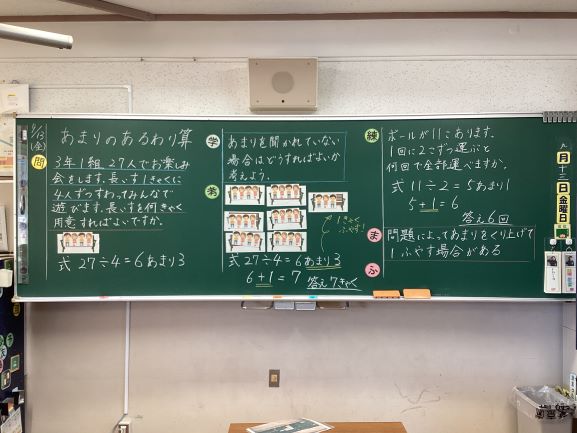 9/13
(金)
あまりのあるわり算
問
3年1組 27人でお楽しみ
会をします。長いす1きゃくに
4人ずつすわってみんなで
遊びます。長いすを何きゃく
用意すればよいですか。
式 27÷4=6あまり3
学
あまりを聞かれていない
場合はどうすればよいか
考えよう。
考
1きゃく
ふやす!
式 27÷4=6あまり3
6+1=7 答え7きゃく
練
ボールが11こあります。
1回に2こずつ運ぶと
何回で全部運べますか。
式 11÷2=5あまり1
5+1=6
答え6回
ま
問題によってあまりをくり上げて
1ふやす場合がある
ふ
九
月
十三
日
金曜日